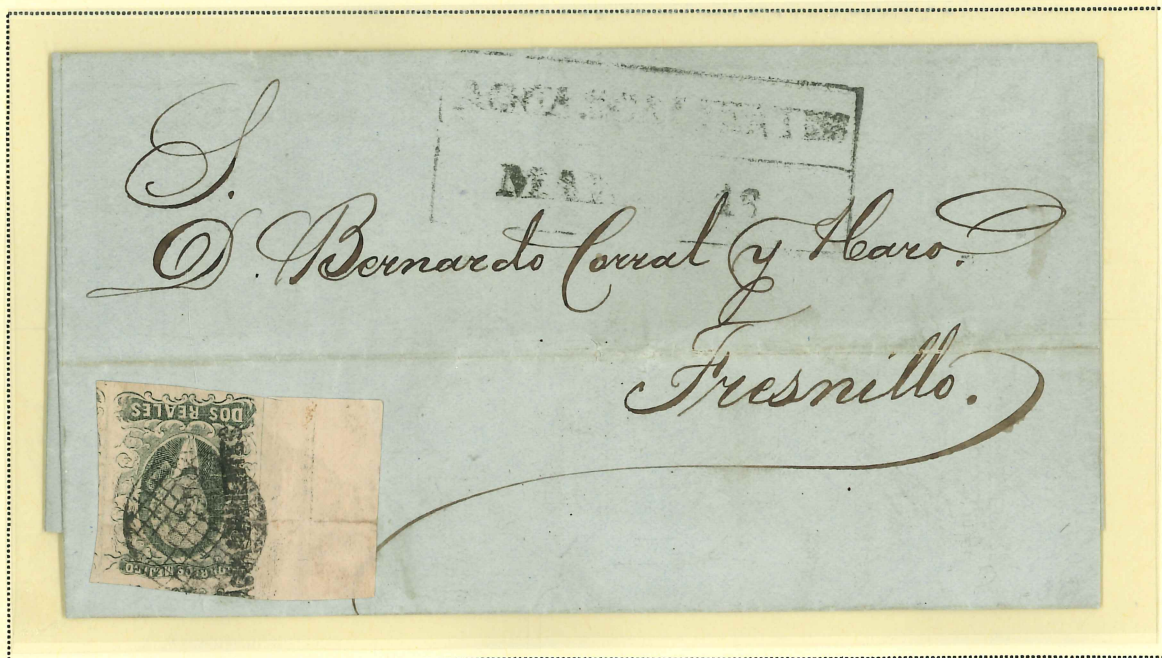 AGUASCALIENTES
MAR 18
S.
D. Bernardo Corral y Haro.
Fresnillo.
DOS REALES
CORREOS MEJICO